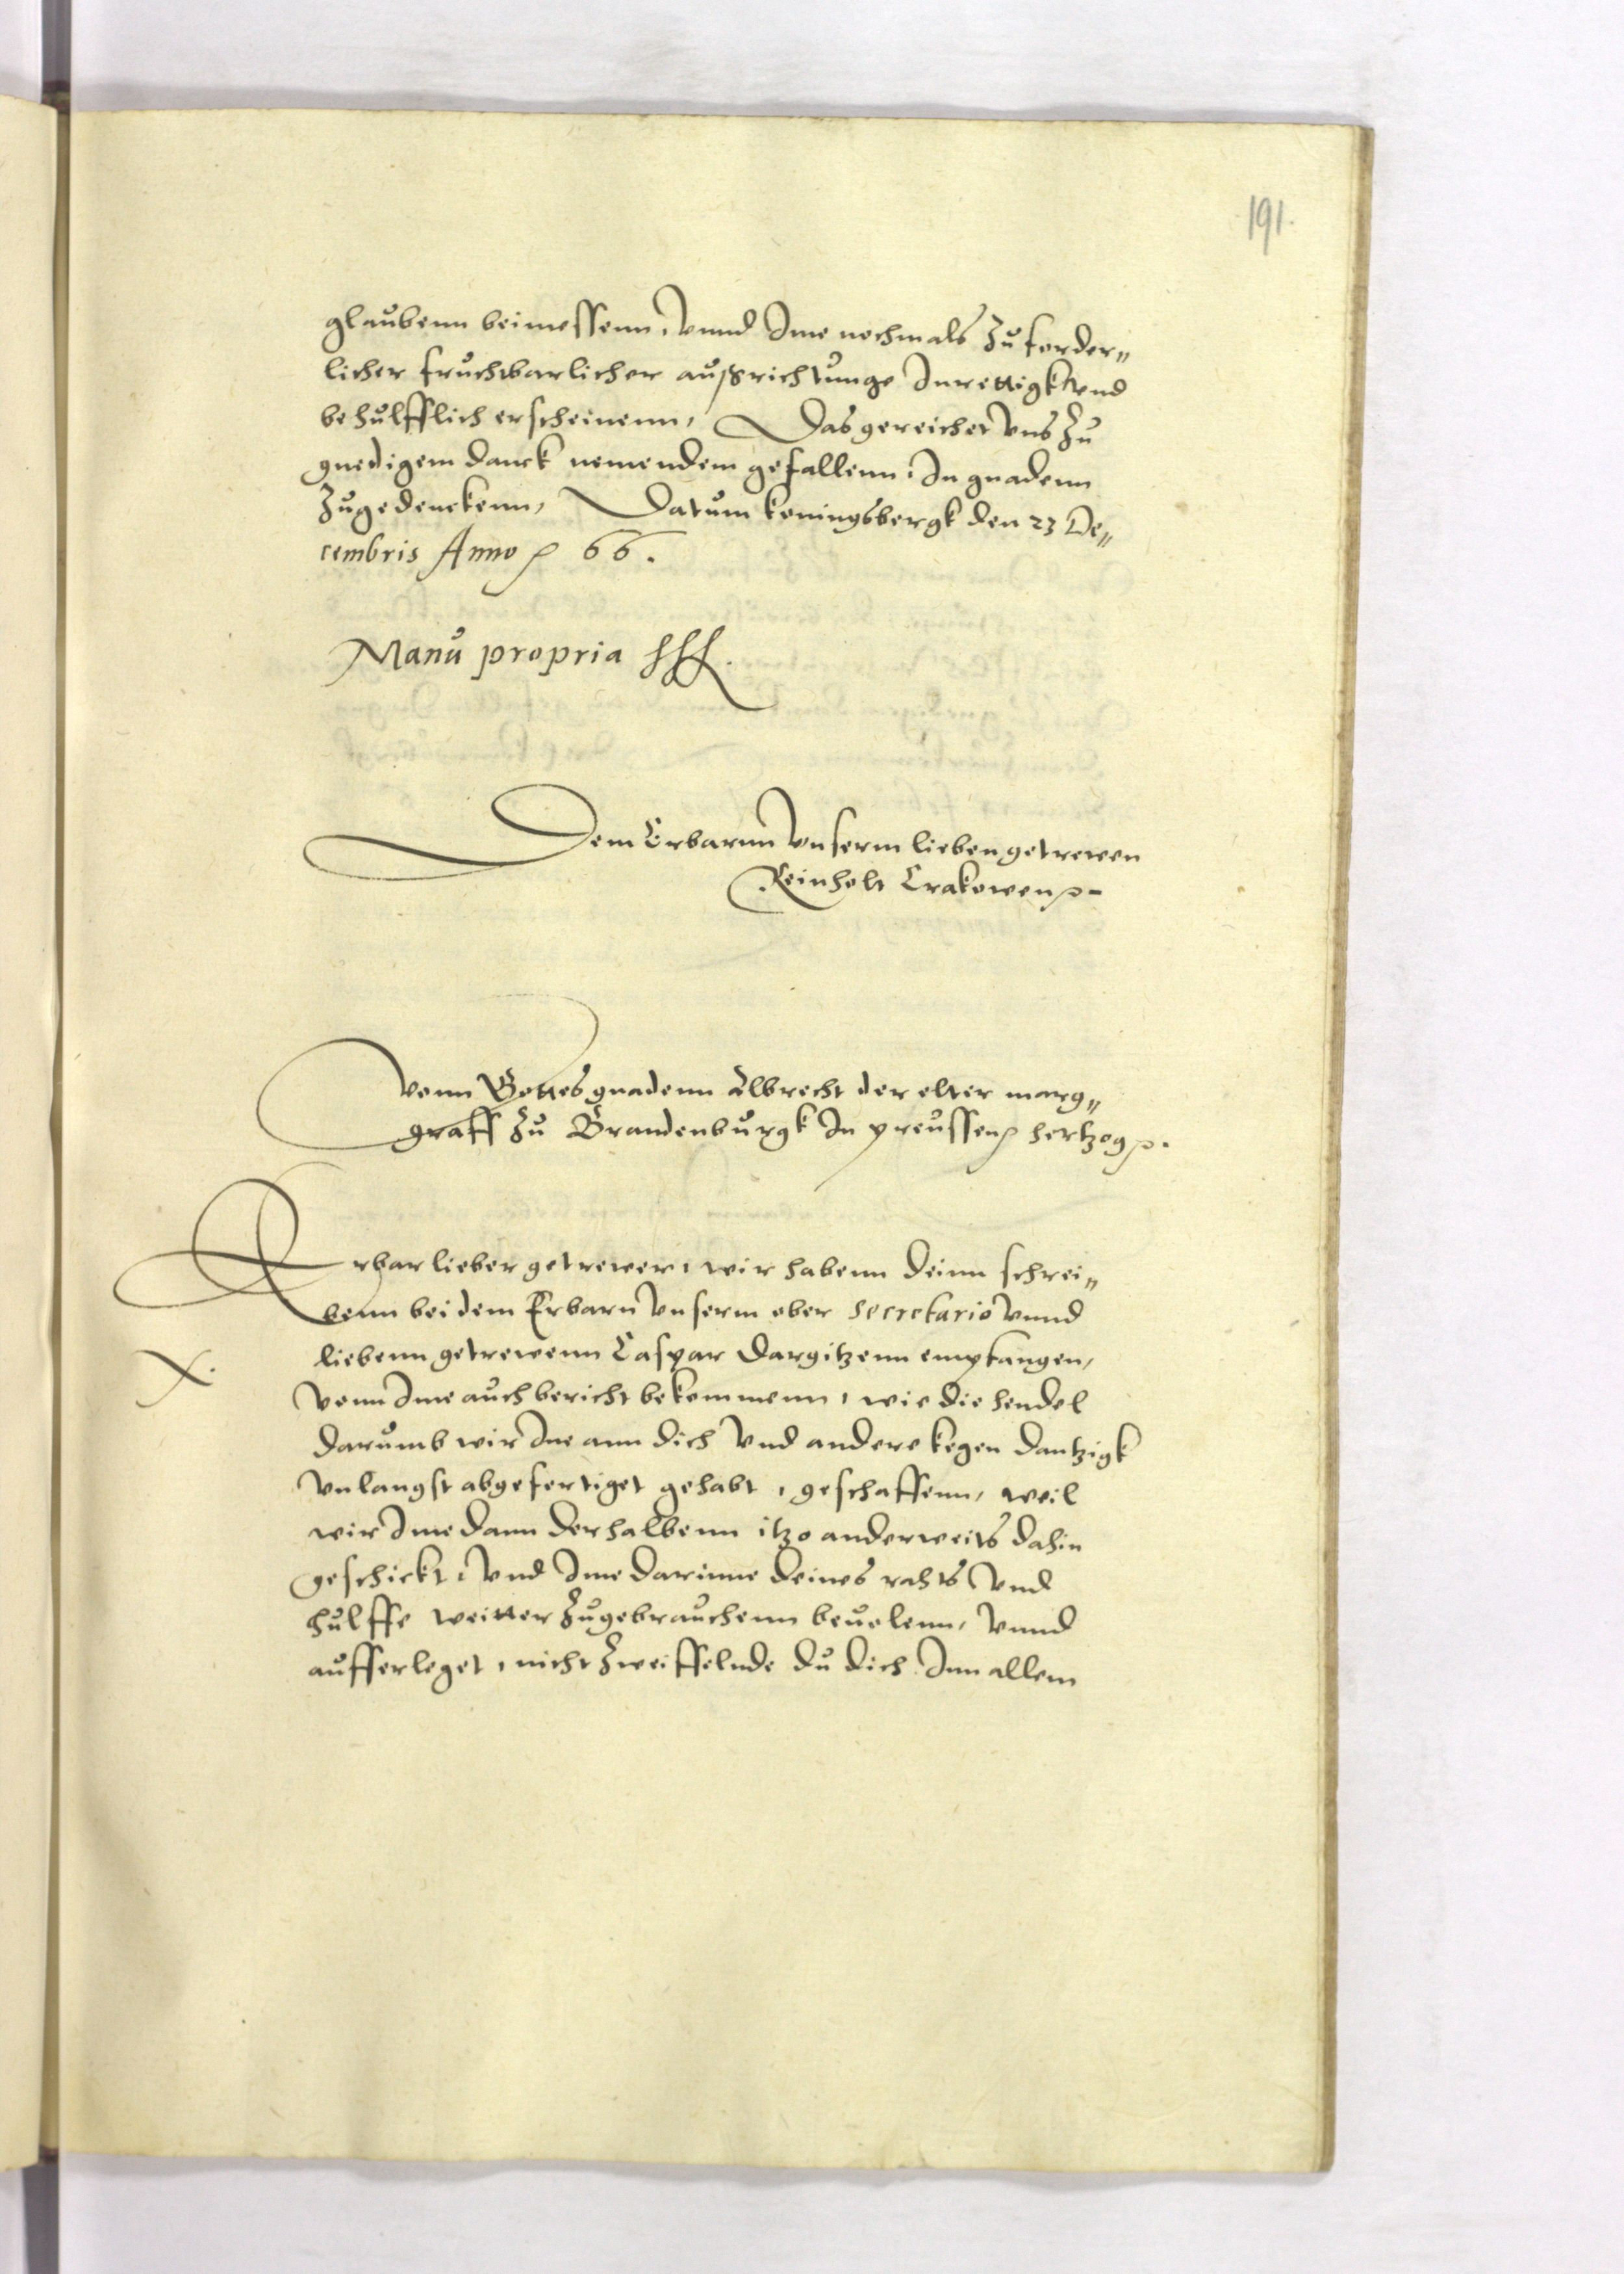 191.
glaubenn beimessenn, vnnd Ime nochmals zu forder„
licher fruchtbarlicher außrichtunge Inrettigk vnd
behulfflich erscheinenn, Das gereichet vns zu
gnedigem danck nemendem gefallenn, In gnadenn
zugedenckenn, Datum koningsbergk den 23 De„
cembris Anno p 66.
Manu propria sss.
Dem Erbarnn vnserm lieben getrewen
Reinholt Crakowen p-
Vonn Gottes gnadenn Albrecht der elter marg„
graff zu Brandenburgk In preussenn p hertzog p.
Erbar lieber getrewer, wir habenn deinn schrei„
benn bei dem Erbarn vnserm ober Secretario vnnd
X.
liebenn getrewenn Caspar Dargitzenn empfangen,
vonn Ime auch bericht bekommenn, wie die hendel
darumb wir Ine ann dich vnd andere kegen Dantzigk
vnlangst abgefertiget gehabt, geschaffenn, weil
wir Ime dann derhalbenn itzo anderweits dahin
geschickt, vnd Ime darinne deines rahts vnd
hulffe weitter zugebrauchenn beuolenn, vnnd
aufferleget, nicht zweiffelnde du dich Inn allem